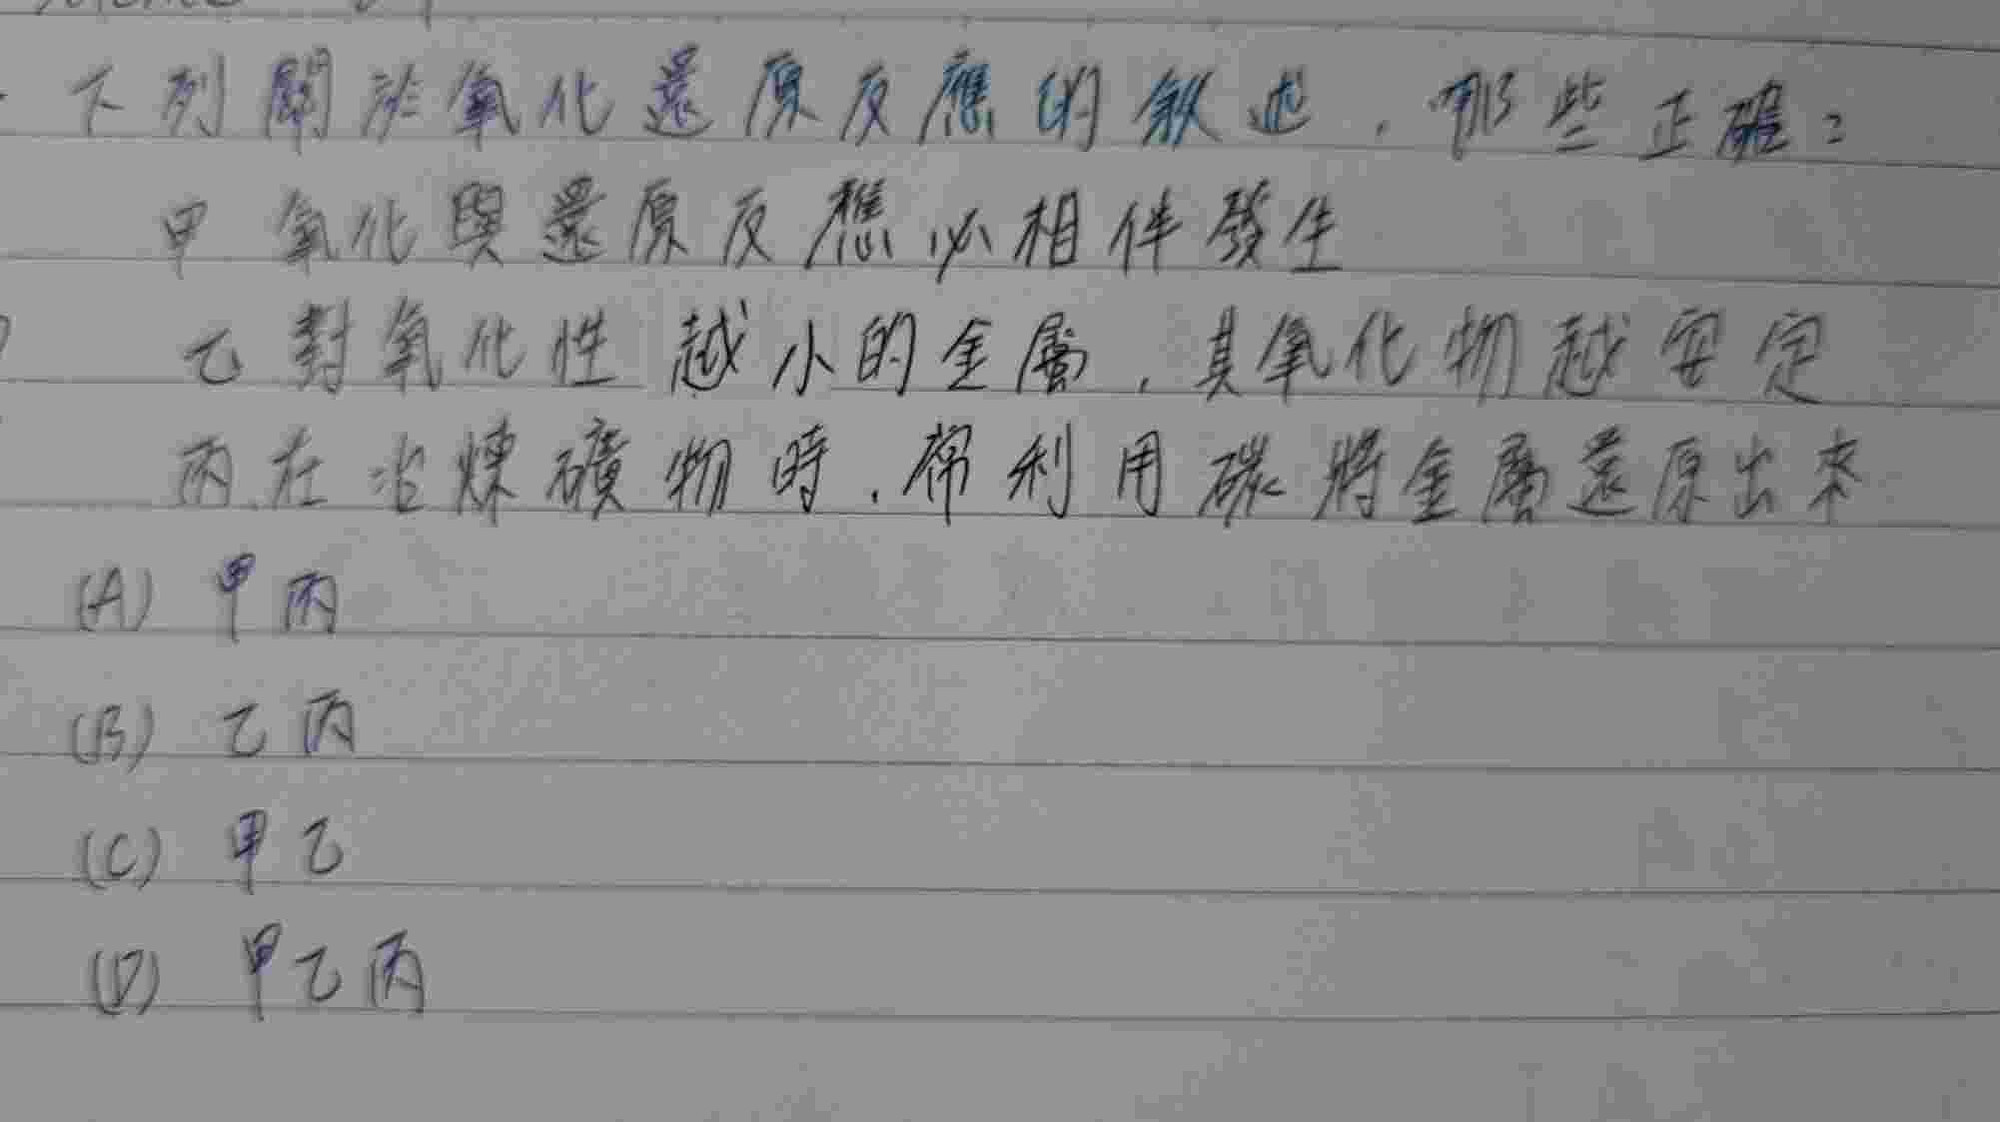 下列關於氧化還原反應的敘述，哪些正確：
甲 氧化與還原反應必相伴發生
乙 對氧化性越小的金屬，其氧化物越安定
丙 在冶煉礦物時，常利用碳將金屬還原出來
(A) 甲丙
(B) 乙丙
(C) 甲乙
(D) 甲乙丙